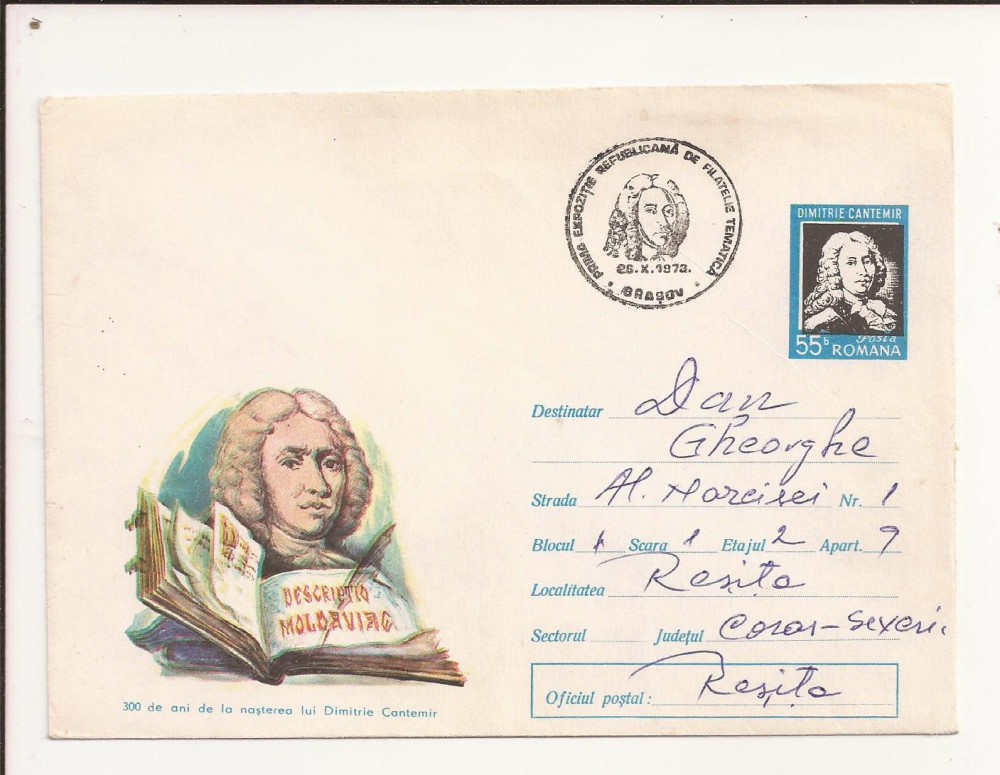 PRIMA EXPOZIȚIE REPUBLICANĂ DE FILATELIE TEMATICĂ
26.X.1973.
BRAȘOV
DIMITRIE CANTEMIR
55b Posta
ROMANA
Destinatar Dan
Gheorghe
Strada Al. Narcisei Nr. 1
Blocul 1 Scara 1 Etajul 2 Apart. 9
Localitatea Reșița
Sectorul Județul Caraș-Severin
Oficiul poștal: Reșița
DESCRIPTIO
MOLDAVIAE
300 de ani de la nașterea lui Dimitrie Cantemir